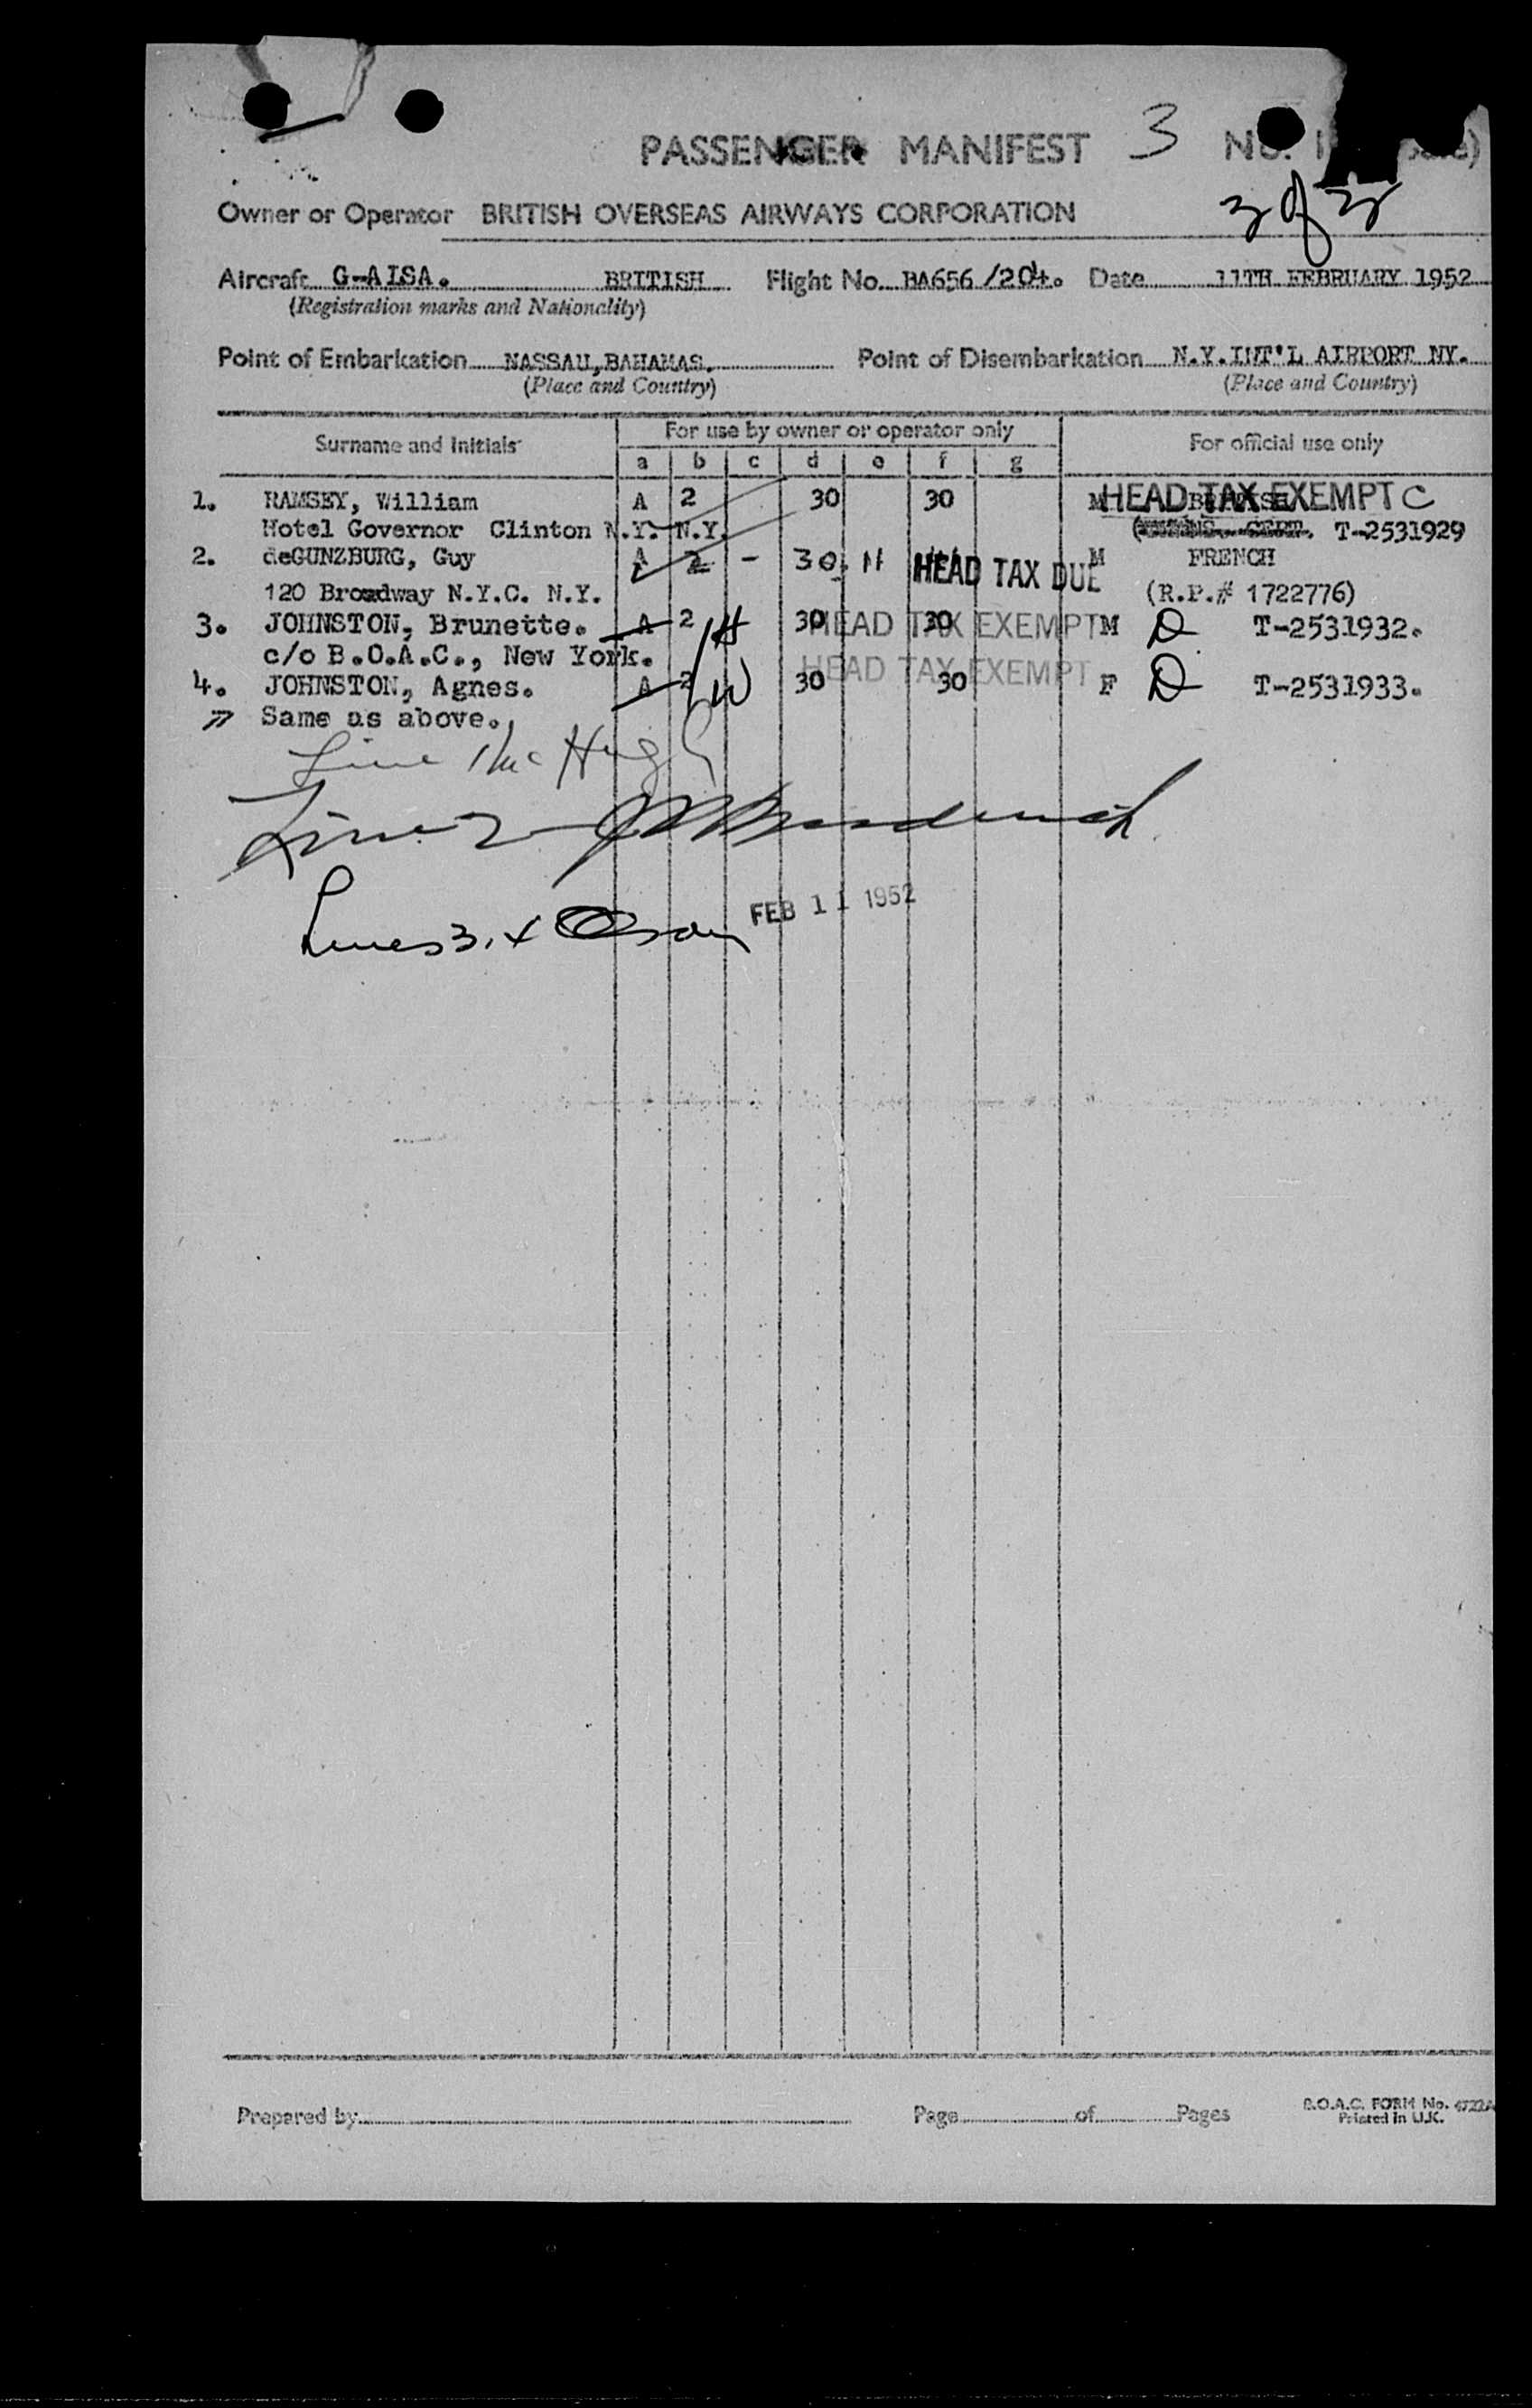 PASSENGER MANIFEST 3 No.
3 of 3
Owner or Operator BRITISH OVERSEAS AIRWAYS CORPORATION
Aircraft G-AISA. BRITISH Flight No. BA656/204. Date 11TH FEBRUARY 1952
(Registration marks and Nationality)
Point of Embarkation NASSAU,BAHAMAS. Point of Disembarkation N.Y.INT'L AIRPORT NY.
(Place and Country) (Place and Country)
Surname and Initials For use by owner or operator only For official use only
a b c d e f g
1. RAMSEY, William A 2 30 30 M HEAD TAX EXEMPT C
Hotel Governor Clinton N.Y. N.Y. T-2531929
2. deGUNZBURG, Guy A 2 - 30 11 HEAD TAX DUE M FRENCH
120 Broadway N.Y.C. N.Y. (R.P.# 1722776)
3. JOHNSTON, Brunette. A 2 H 30 30 HEAD TAX EXEMPT M D T-2531932.
c/o B.O.A.C., New York.
4. JOHNSTON, Agnes. A 2 W 30 30 HEAD TAX EXEMPT F D T-2531933.
" Same as above.
Line 1 McHugh
Line 2
Lines 3, 4 Olson FEB 11 1952
Prepared by Page of Pages B.O.A.C. FORM No. 4722A
Printed in U.K.